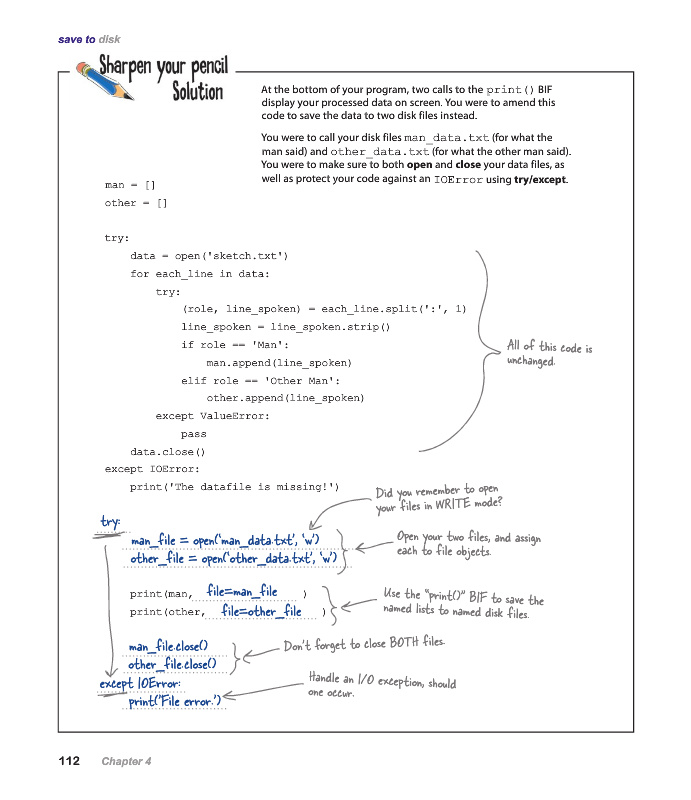 save to disk
Sharpen your pencil
Solution
At the bottom of your program, two calls to the print() BIF
display your processed data on screen. You were to amend this
code to save the data to two disk files instead.
You were to call your disk files man_data.txt (for what the
man said) and other_data.txt (for what the other man said).
You were to make sure to both open and close your data files, as
well as protect your code against an IOError using try/except.
man = []
other = []
try:
    data = open('sketch.txt')
    for each_line in data:
        try:
            (role, line_spoken) = each_line.split(':', 1)
            line_spoken = line_spoken.strip()
            if role == 'Man':
                man.append(line_spoken)
            elif role == 'Other Man':
                other.append(line_spoken)
        except ValueError:
            pass
    data.close()
except IOError:
    print('The datafile is missing!')
All of this code is
unchanged.
Did you remember to open
your files in WRITE mode?
try:
    man_file = open('man_data.txt', 'w')
    other_file = open('other_data.txt', 'w')
Open your two files, and assign
each to file objects.
    print(man, file=man_file )
    print(other, file=other_file )
Use the "print()" BIF to save the
named lists to named disk files.
    man_file.close()
    other_file.close()
Don't forget to close BOTH files.
except IOError:
    print('File error.')
Handle an I/O exception, should
one occur.
112 Chapter 4